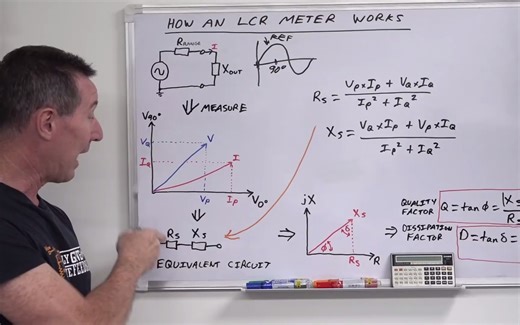 HOW AN LCR METER WORKS
RRANGE
I
XDUT
REF
90°
MEASURE
V90°
VQ
V
IQ
I
VP
IP
V0°
RS = VP×IP + VQ×IQ
IP² + IQ²
XS = VQ×IP + VP×IQ
IP² + IQ²
RS XS
EQUIVALENT CIRCUIT
jX
XS
δ
Ø
RS
R
QUALITY FACTOR
Q = tan Ø = |XS
R
DISSIPATION FACTOR
D = tan δ =